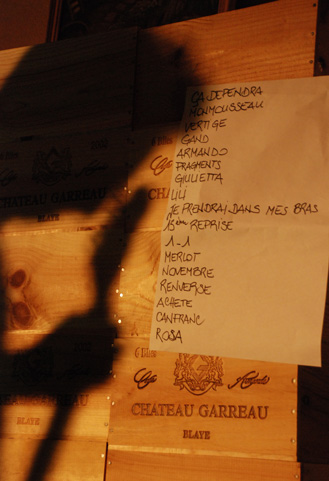 ÇA DEPENDRA
MONMOUSSEAU
VERTIGE
GAND
ARMANDO
FRAGMENTS
GIULIETTA
LILI
JE PRENDRAI DANS MES BRAS
15ème REPRISE
1-1
MERLOT
NOVEMBRE
RENVERSE
ACHETE
CANFRANC
ROSA
CHATEAU GARREAU
BLAYE
CHATEAU GARREAU
BLAYE